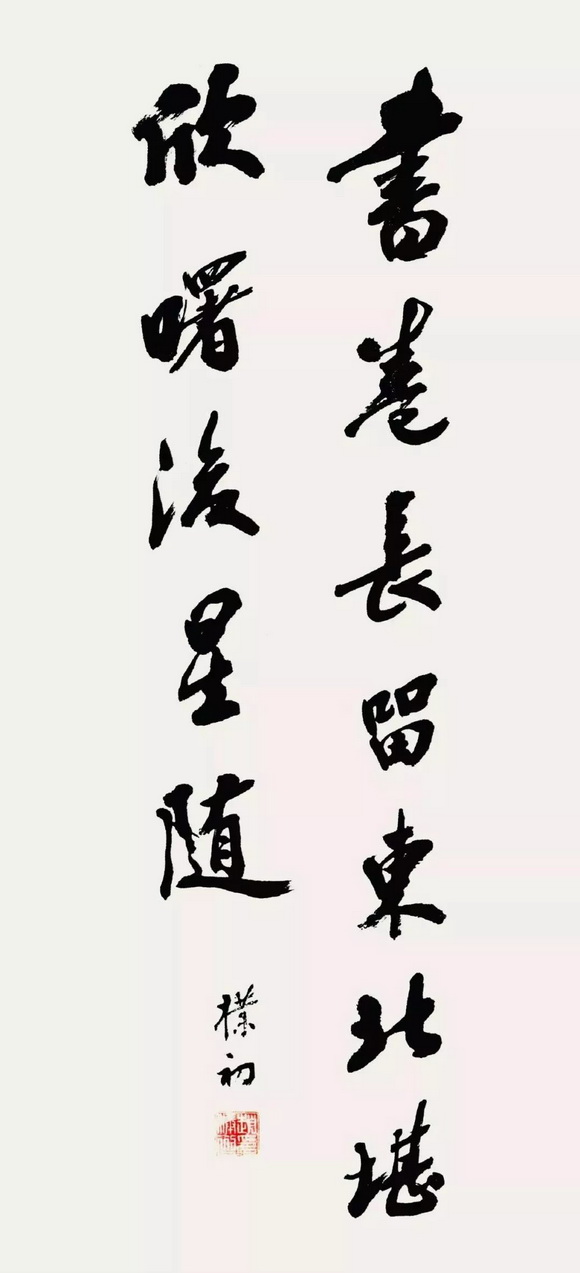 書卷長留東北堪
欣曙後星随
樸初